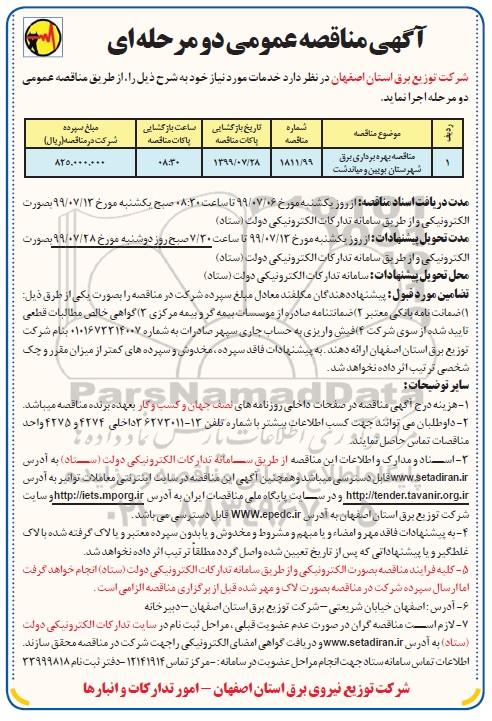 آگهی مناقصه عمومی دو مرحله ای
شرکت توزیع برق استان اصفهان در نظر دارد خدمات مورد نیاز خود به شرح ذیل را، از طریق مناقصه عمومی
دو مرحله اجرا نماید.
ردیف موضوع مناقصه شماره مناقصه تاریخ بازگشایی پاکات مناقصه ساعت بازگشایی پاکات مناقصه مبلغ سپرده شرکت در مناقصه (ریال)
۱ مناقصه بهره برداری برق شهرستان بویین و میاندشت ۱۸۱۱/۹۹ ۱۳۹۹/۰۷/۲۸ ۰۸:۳۰ ۸۲۵,۰۰۰,۰۰۰
مدت دریافت اسناد مناقصه: از روز یکشنبه مورخ ۹۹/۰۷/۰۶ تا ساعت ۰۸:۳۰ صبح یکشنبه مورخ ۹۹/۰۷/۱۳ بصورت
الکترونیکی و از طریق سامانه تدارکات الکترونیکی دولت (ستاد)
مدت تحویل پیشنهادات: از روز یکشنبه مورخ ۹۹/۰۷/۱۳ تا ساعت ۷/۳۰ صبح روز دوشنبه مورخ ۹۹/۰۷/۲۸ بصورت
الکترونیکی و از طریق سامانه تدارکات الکترونیکی دولت (ستاد)
محل تحویل پیشنهادات: سامانه تدارکات الکترونیکی دولت (ستاد)
تضامین مورد قبول: پیشنهاددهندگان مکلفند معادل مبلغ سپرده شرکت در مناقصه را بصورت یکی از طرق ذیل:
۱) ضمانت نامه بانکی معتبر ۲) ضمانتنامه صادره از موسسات بیمه گر و بیمه مرکزی ۳) گواهی خالص مطالبات قطعی
تایید شده از سوی شرکت ۴) فیش واریزی به حساب جاری سپهر صادرات به شماره ۰۱۰۱۶۷۳۲۱۴۰۰۷ بنام شرکت
توزیع برق استان اصفهان ارائه دهند. به پیشنهادات فاقد سپرده، مخدوش و سپرده های کمتر از میزان مقرر و چک
شخصی ترتیب اثر داده نخواهد شد.
سایر توضیحات:
۱- هزینه درج آگهی مناقصه در صفحات داخلی روزنامه های نصف جهان و کسب و کار بعهده برنده مناقصه میباشد.
۲- داوطلبان می توانند جهت کسب اطلاعات بیشتر با شماره تلفن ۱۳-۳۶۲۷۳۰۱۱ داخلی ۴۲۷۴ و ۴۲۷۵ واحد
مناقصات تماس حاصل نمایند.
۳- اسناد و مدارک و اطلاعات این مناقصه از طریق سامانه تدارکات الکترونیکی دولت (ستاد) به آدرس
www.setadiran.ir قابل دسترسی میباشد و همچنین آگهی این مناقصه در سایت اینترنتی معاملات توانیر به آدرس
http://tender.tavanir.org.ir و در سایت پایگاه ملی مناقصات ایران به آدرس http://iets.mporg.ir و سایت
شرکت توزیع برق استان اصفهان به آدرس WWW.epedc.ir قابل دسترسی می باشد.
۴- به پیشنهادات فاقد مهر و امضاء و یا مبهم و مشروط و مخدوش و یا بدون سپرده معتبر و یا لاک گرفته شده با لاک
غلط گیر و یا پیشنهاداتی که پس از تاریخ تعیین شده واصل گردد مطلقا ترتیب اثر داده نخواهد شد.
۵- کلیه فرایند مناقصه بصورت الکترونیکی و از طریق سامانه تدارکات الکترونیکی دولت (ستاد) انجام خواهد گرفت
اما ارسال سپرده شرکت در مناقصه بصورت لاک و مهر شده قبل از برگزاری مناقصه الزامی است.
۶- آدرس: اصفهان خیابان شریعتی - شرکت توزیع برق استان اصفهان - دبیرخانه
۷- لازم است مناقصه گران در صورت عدم عضویت قبلی، مراحل ثبت نام در سایت تدارکات الکترونیکی دولت
(ستاد) به آدرس www.setadiran.ir و دریافت گواهی امضای الکترونیکی را جهت شرکت در مناقصه محقق سازند.
اطلاعات تماس سامانه ستاد جهت انجام مراحل عضویت در سامانه: - مرکز تماس ۱۲۱۴۱۹۱۴- دفتر ثبت نام ۳۳۹۹۹۸۱۸
شرکت توزیع نیروی برق استان اصفهان - امور تدارکات و انبارها
ParsNamadData